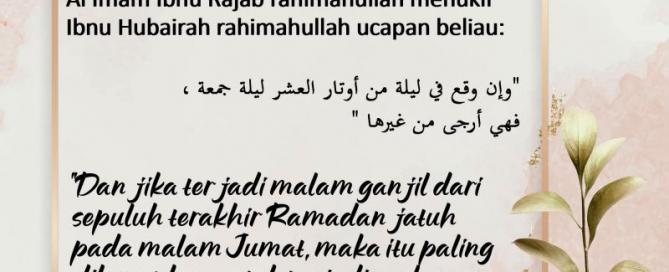 Al Imam Ibnu Rajab rahimahullah menukil
Ibnu Hubairah rahimahullah ucapan beliau:
"وإن وقع في ليلة من أوتار العشر ليلة جمعة ،
فهي أرجى من غيرها "
"Dan jika terjadi malam ganjil dari
sepuluh terakhir Ramadan jatuh
pada malam Jumat, maka itu paling